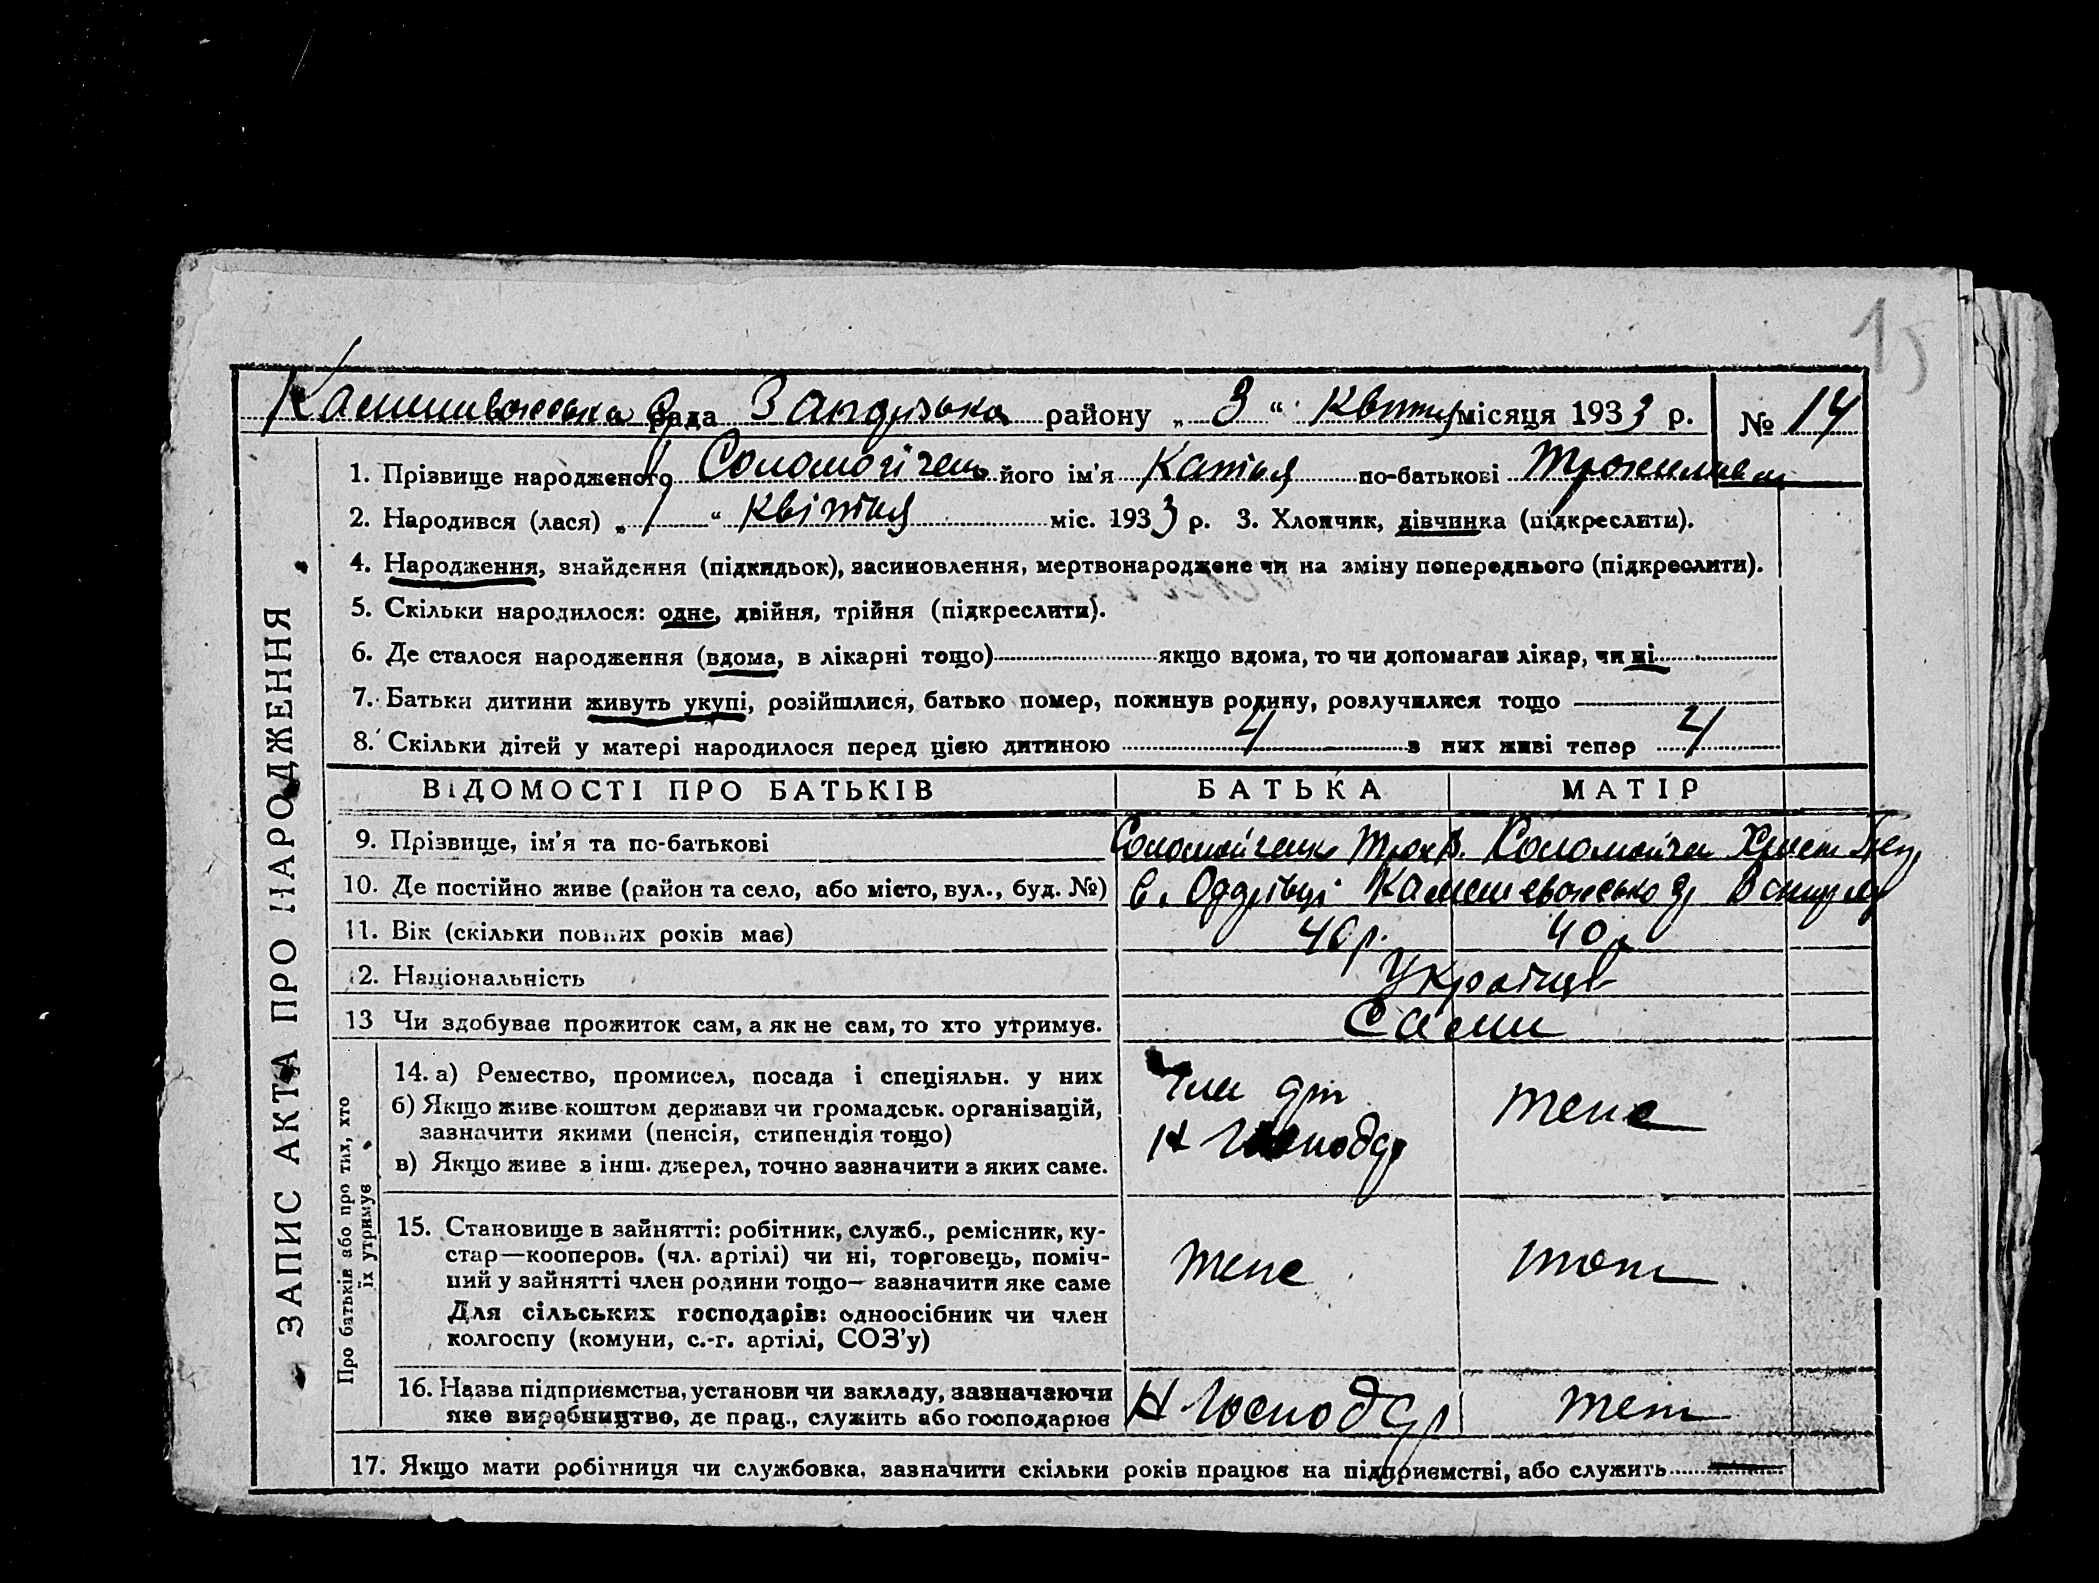 15
Камишеваська рада Запорізька району „ 3 “ Квітня місяця 1933 р. № 14
ЗАПИС АКТА ПРО НАРОДЖЕННЯ
1. Прізвище народженого Соломайченко його ім'я Катня по-батькові
2. Народився (лася) „ 1 “ Квітня міс. 1933 р. 3. Хлопчик, дівчинка (підкреслити).
4. Народження, знайдення (підкидьок), засиновлення, мертвонароджене чи на зміну попереднього (підкреслити).
5. Скільки народилося: одне, двійня, трійня (підкреслити).
6. Де сталося народження (вдома, в лікарні тощо) якщо вдома, то чи допомагав лікар, чи ні
7. Батьки дитини живуть укупі, розійшлися, батько помер, покинув родину, розлучилися тощо
8. Скільки дітей у матері народилося перед цією дитиною 4 з них живі тепер 4
ВІДОМОСТІ ПРО БАТЬКІВ БАТЬКА МАТІР
9. Прізвище, ім'я та по-батькові Соломайченко Трох В. Соломайчен Христ
10. Де постійно живе (район та село, або місто, вул., буд. №) в.
11. Вік (скільки повних років має) 40 р. 40 р.
12. Національність Українці
13 Чи здобуває прожиток сам, а як не сам, то хто утримує. Сами
Про батьків або про тих, хто їх утримує
14. а) Ремество, промисел, посада і спеціяльн. у них Член арт
б) Якщо живе коштом держави чи громадськ. організацій, теж
зазначити якими (пенсія, стипендія тощо) Н Господар
в) Якщо живе з інш. джерел, точно зазначити з яких саме.
15. Становище в зайнятті: робітник, служб., ремісник, ку-
стар—кооперов. (чл. артілі) чи ні, торговець, поміч- теж теж
ний у зайнятті член родини тощо— зазначити яке саме
Для сільських господарів: одноосібник чи член
колгоспу (комуни, с.-г. артілі, СОЗ'у)
16. Назва підприємства, установи чи закладу, зазначаючи Н Господар теж
яке виробництво, де прац., служить або господарює
17. Якщо мати робітниця чи службовка, зазначити скільки років працює на підприємстві, або служить